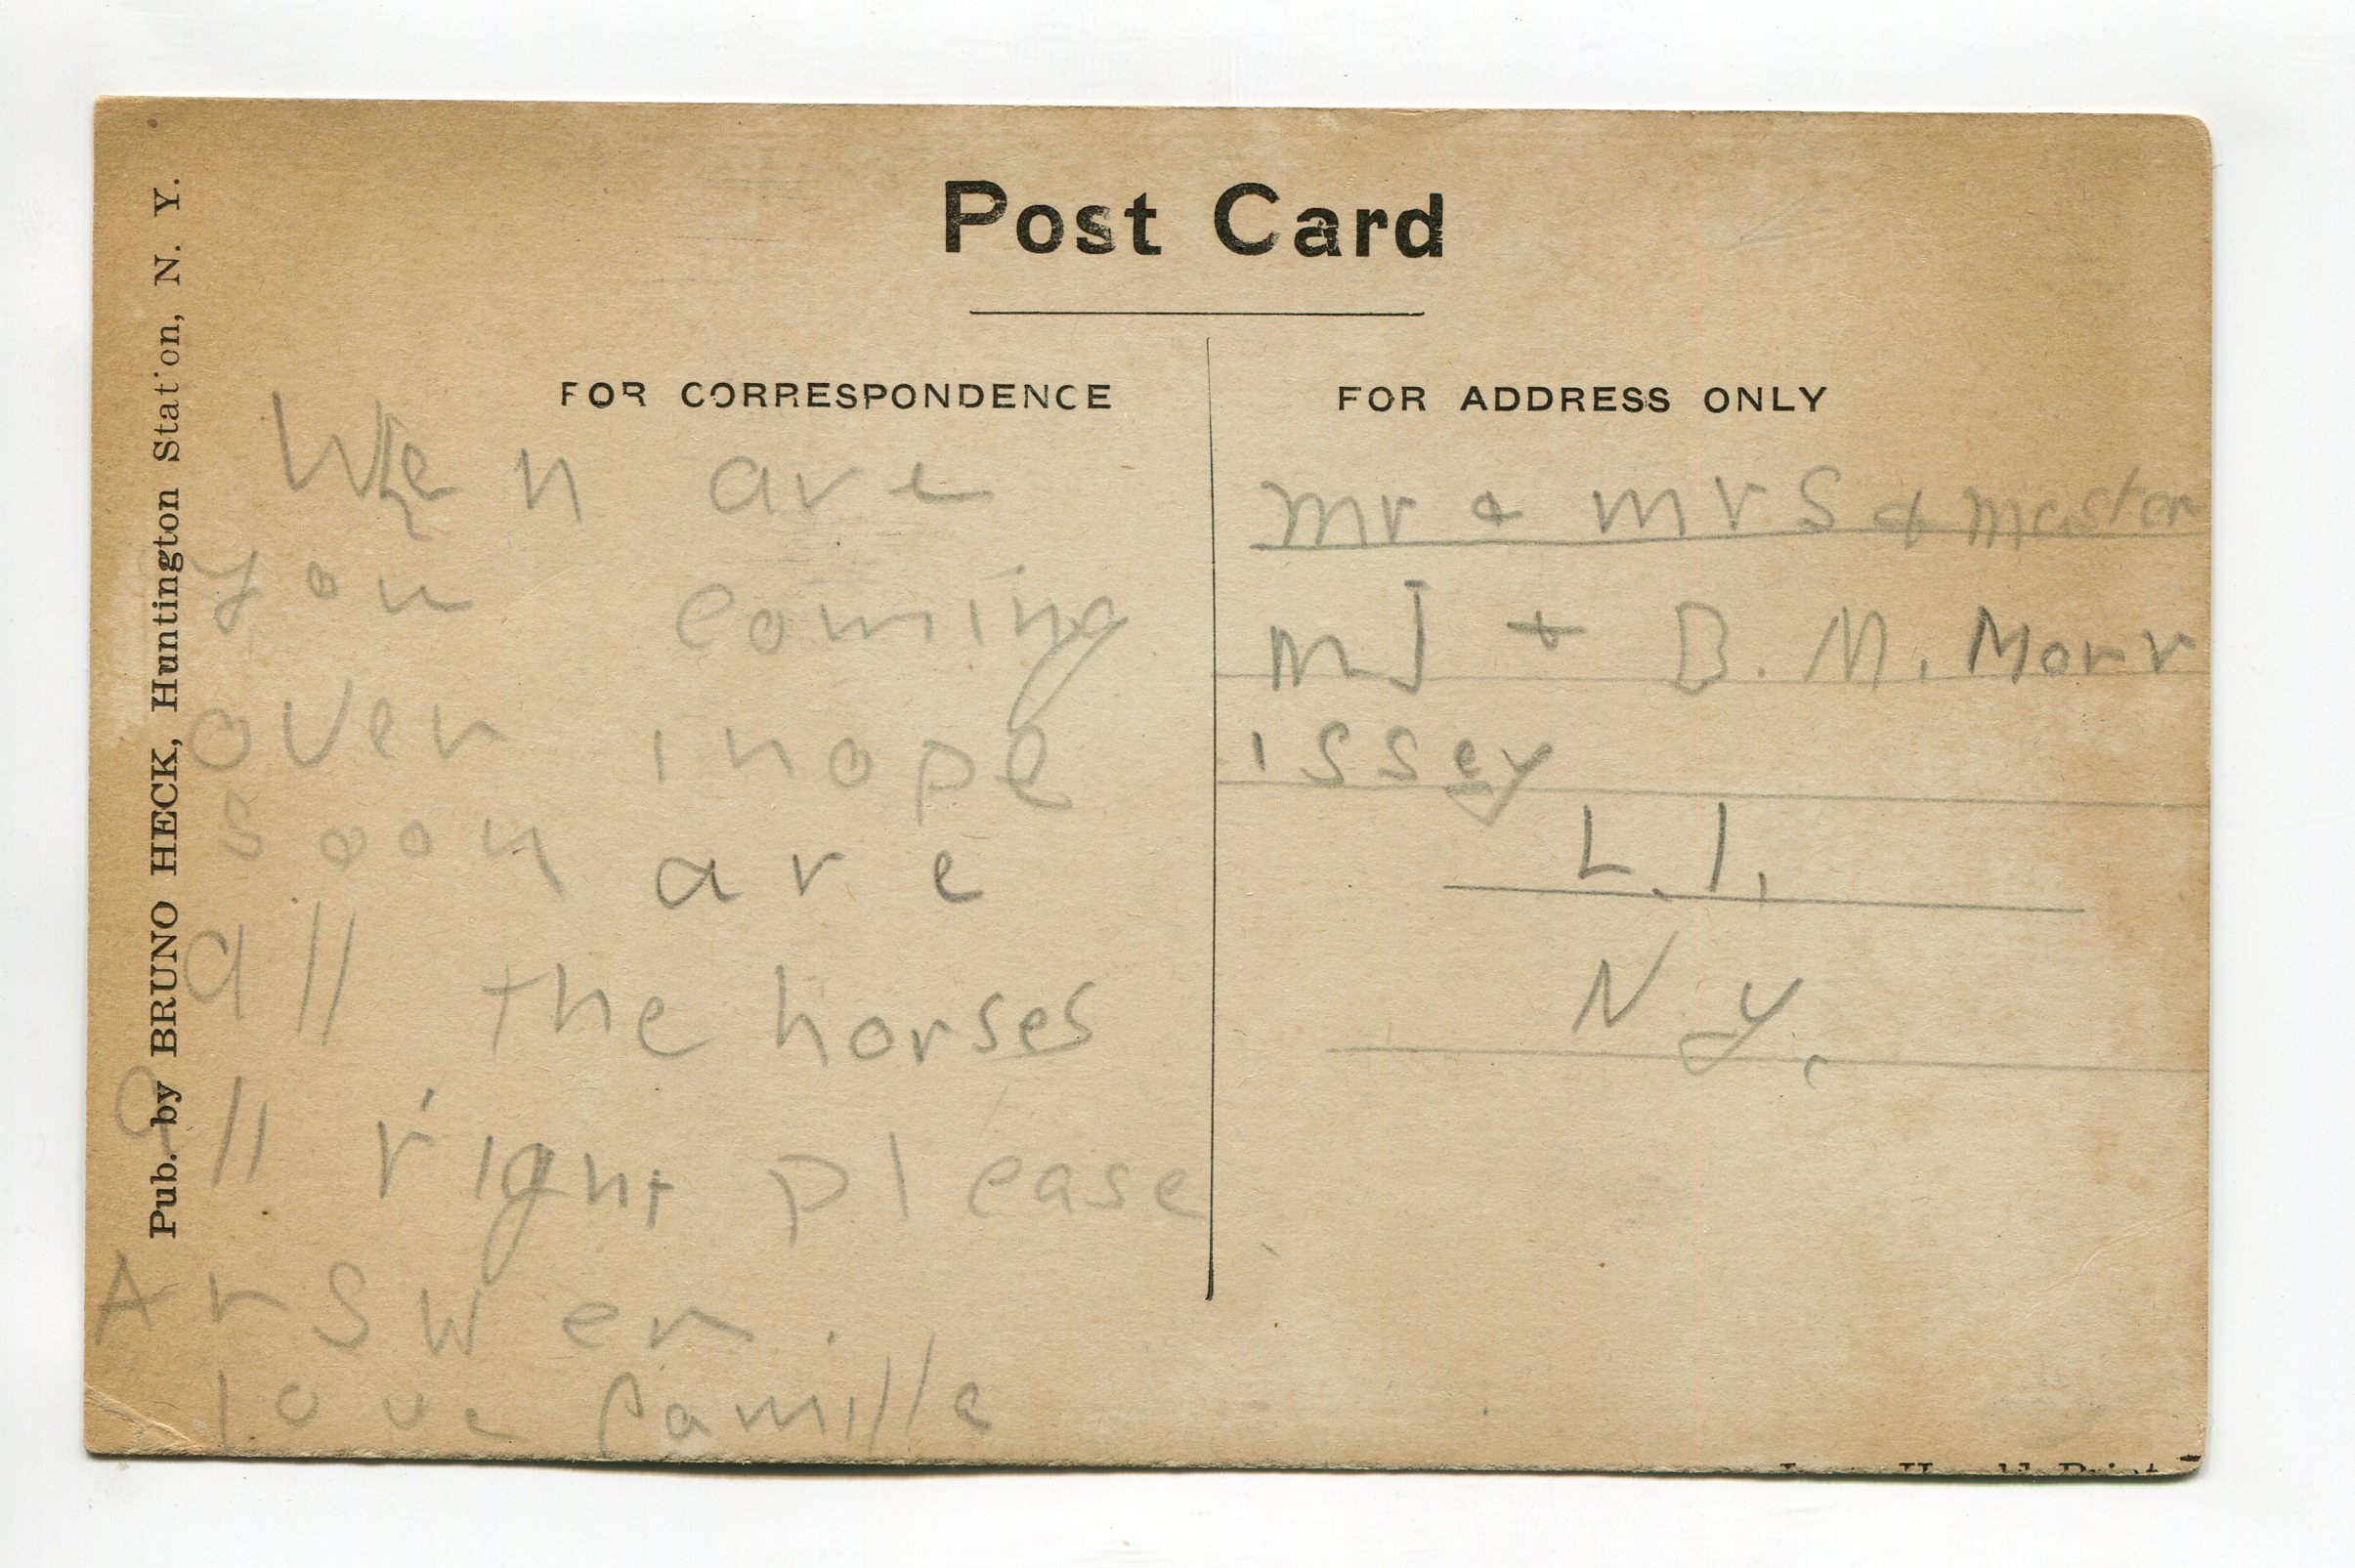 Post Card
FOR CORRESPONDENCE
FOR ADDRESS ONLY
Pub. by BRUNO HECK, Huntington Station, N. Y.
When are
you coming
over i hope
soon are
all the horses
all right please
Answer.
love Camilla
mr & mrs & master
M J + B. M. Morr
issey
L. I.
N. y.